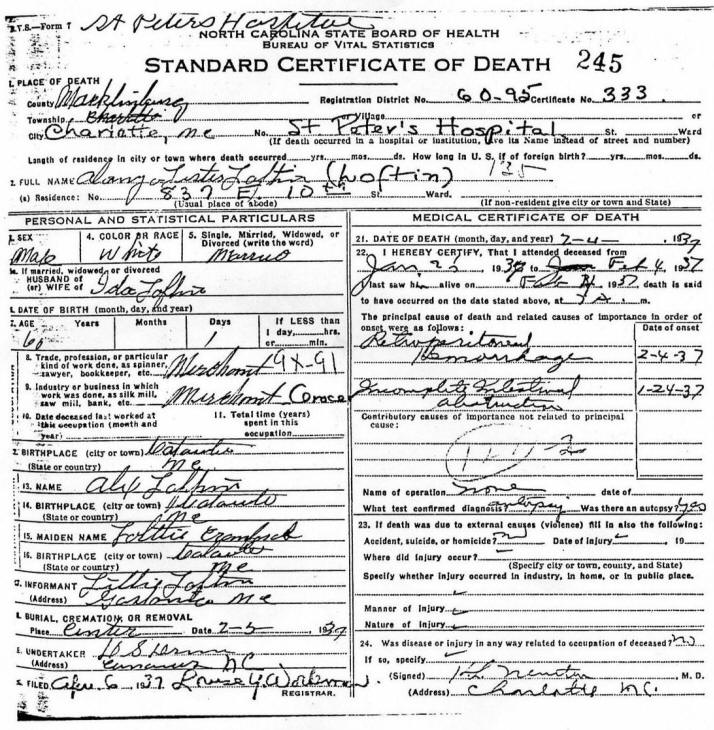 St Peters Hospital
V.S.—Form 7
NORTH CAROLINA STATE BOARD OF HEALTH
BUREAU OF VITAL STATISTICS
STANDARD CERTIFICATE OF DEATH 245
1. PLACE OF DEATH
County Registration District No. 60-95 Certificate No. 333
Township or Village or
City Charlotte, NC No. St Peter's Hospital St. Ward
(If death occurred in a hospital or institution, give its Name instead of street and number)
Length of residence in city or town where death occurred yrs. mos. ds. How long in U. S. if of foreign birth? yrs. mos. ds.
2. FULL NAME (Loftin) 125
(a) Residence: No. 837 E. 10th St. Ward.
(Usual place of abode) (If non-resident give city or town and State)
PERSONAL AND STATISTICAL PARTICULARS
3. SEX 4. COLOR OR RACE 5. Single, Married, Widowed, or
Divorced (write the word)
Male White
5a. If married, widowed, or divorced
HUSBAND of
(or) WIFE of Ida Loftin
6. DATE OF BIRTH (month, day, and year)
7. AGE Years Months Days If LESS than
1 day, hrs.
or min.
8. Trade, profession, or particular
kind of work done, as spinner,
sawyer, bookkeeper, etc. Merchant 9X-91
9. Industry or business in which
work was done, as silk mill,
saw mill, bank, etc. Merchant
10. Date deceased last worked at
this occupation (month and
year)
11. Total time (years)
spent in this
occupation
12. BIRTHPLACE (city or town)
(State or country) NC
13. NAME Loftin
14. BIRTHPLACE (city or town)
(State or country) NC
15. MAIDEN NAME
16. BIRTHPLACE (city or town)
(State or country) NC
17. INFORMANT Loftin
(Address) NC
18. BURIAL, CREMATION, OR REMOVAL
Place Center Date 2-5 1937
19. UNDERTAKER
(Address) NC
20. FILED 6 1937 Louise Y. Workman
REGISTRAR.
MEDICAL CERTIFICATE OF DEATH
21. DATE OF DEATH (month, day, and year) 2-4- 1937
22. I HEREBY CERTIFY, That I attended deceased from
Jan 23 1937 to Feb 4, 1937
I last saw him alive on Feb 4 1937 death is said
to have occurred on the date stated above, at A. m.
The principal cause of death and related causes of importance in order of
onset were as follows: Date of onset
Retroperitoneal
Hemorrhage 2-4-37
Incomplete Intestinal 1-24-37
obstruction
Contributory causes of importance not related to principal
cause:
Name of operation none date of
What test confirmed diagnosis? autopsy Was there an autopsy? yes
23. If death was due to external causes (violence) fill in also the following:
Accident, suicide, or homicide? no Date of injury 19
Where did injury occur?
(Specify city or town, county, and State)
Specify whether injury occurred in industry, in home, or in public place.
Manner of injury
Nature of injury
24. Was disease or injury in any way related to occupation of deceased? no
If so, specify
(Signed) M. D.
(Address) Charlotte NC.